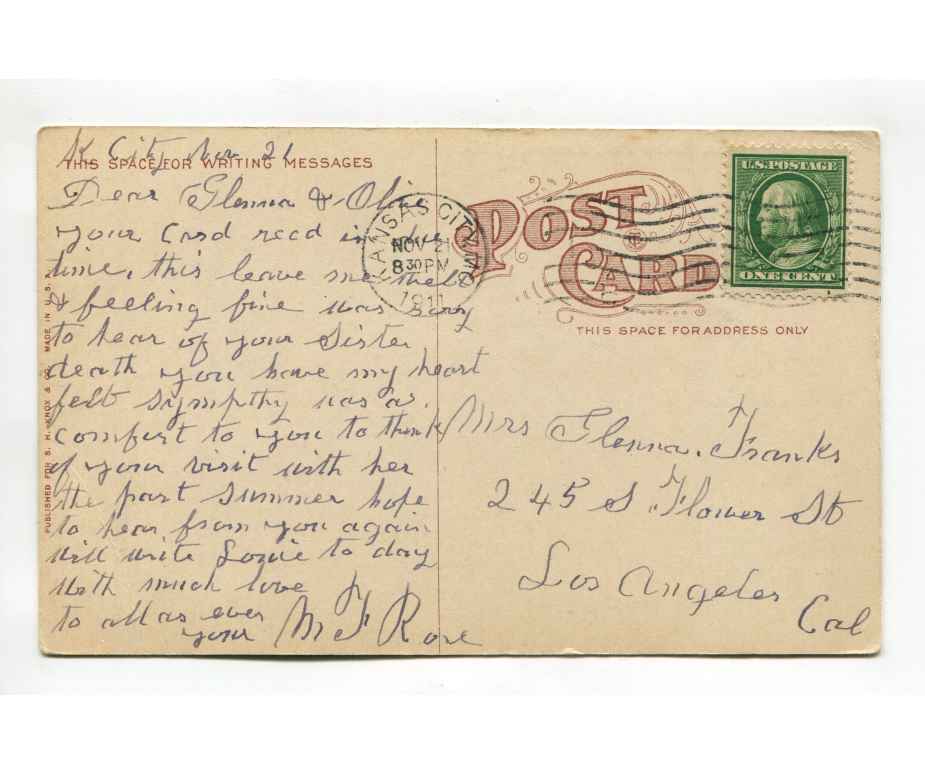 K City Nov 21
THIS SPACE FOR WRITING MESSAGES
Dear Glenna & Olive
your Card recd in due
time, this leave me well
& feeling fine was sorry
to hear of your Sister
death you have my heart
felt Sympthy was a
comfort to you to think
of your visit with her
the past Summer hope
to hear from you again
will write Louie to day
With much love
to all as ever
your M F Rose
PUBLISHED FOR S. H. KNOX & CO. MADE IN U. S.
KANSAS CITY, MO.
NOV 21
830PM
1911
POST
CARD
U.S.POSTAGE
ONE CENT
THIS SPACE FOR ADDRESS ONLY
Mrs Glenna Franks
245 S Flower St
Los Angeles
Cal